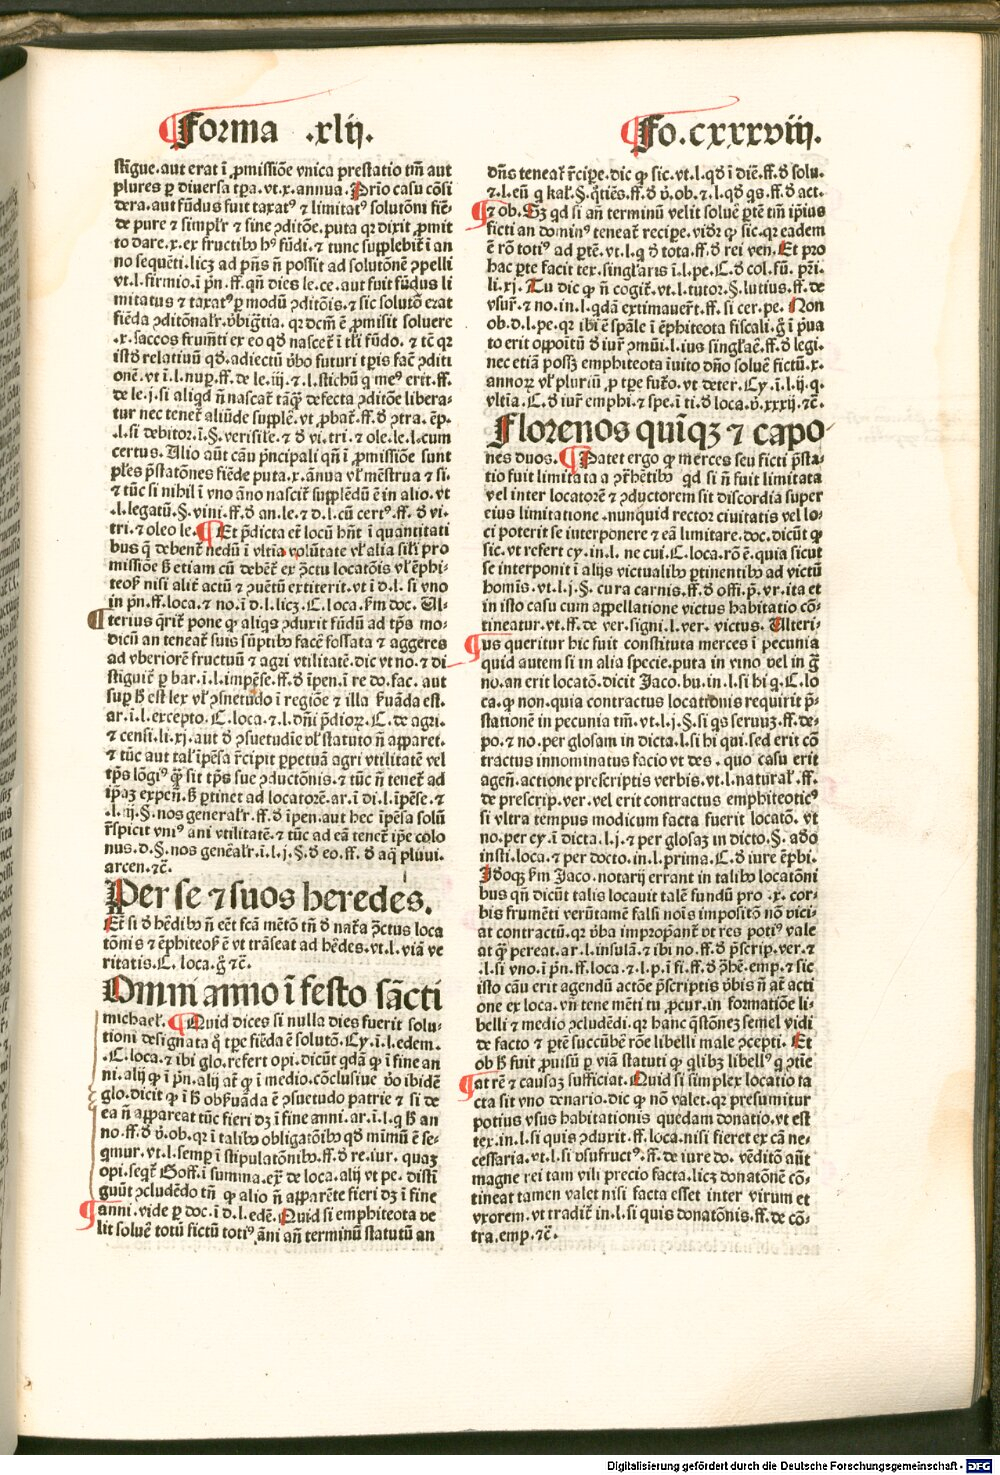 Forma .xlij.
Fo.cxxxviij.
stīgue.aut erat ī ꝓmissiōe vnica prestatio tm̄ aut
plures ꝑ diuersa tꝑa.vt.x.annua. Prīo casu cōsi
dera.aut fūdus fuit taxatꝰ ⁊ limitatꝰ solutōni fiē-
de pure ⁊ simpl'r ⁊ sine ꝯditōe.puta qꝛ dixit ꝓmit
to dare.x.ex fructibꝰ hꝰ fūdi.⁊ tunc supplebit̄ ī an
no sequēti.licꝫ ad pn̄s n̄ possit ad solutōnē ꝯpelli
vt.l.firmio.ī pn̄.ff.qn̄ dies le.ce.aut fuit fūdus li
mitatus ⁊ taxatꝰ ꝑ modū ꝯditōis.⁊ sic solutō erat
fiēda ꝯditōnal'r.
.x.saccos frumēti ex eo qd̄ nascet̄ ī tl'i fūdo.⁊ tē qꝛ
istd̄ relatiuū qd̄.adiectū v̄bo futuri tꝑis fac̄ ꝯditi
onē.vt ī.l.nuꝑ.ff.de le.iij.⁊.l.stichū q meꝰ erit.ff.
de le.j.si aliqd̄ n̄ nascat̄ tāqꝫ defecta ꝯditōe libera-
tur nec tenet̄ aliūde supplē.vt ꝓbat̄.ff.d̄ ꝯtra.ēp.
.l.si debitor.ī.§.verisil'e.⁊ d̄ vi.tri.⁊ ole.le.l.cum
certus. Alio aūt cāu pn̄cipali qn̄ ī ꝓmissiōe sunt
pl'es p̄statōnes fiēde puta.x.ānua vl' mēstrua ⁊ si.
⁊ tūc si nihil ī vno āno nascit̄ supplēdū ē in alio.vt
.l.legatū.§.vini.ff.d̄ an.le.⁊ d.l.cū certꝰ.ff.d̄ vi.
tri.⁊ oleo le. ¶ Et p̄dicta et̄ locū hn̄t ī quantitati
bus q̄ debent̄ nedū ī vltīa volūtate vl' alia sil'i pro
missiōe s̄ etiam cū debēt̄ ex ꝯctu locatōis vl' ēphi-
teos̄ nisi alit̄ actū ⁊ ꝯuētū extiterit.vt ī d.l.si vno
in pn̄.ff.loca.⁊ no.ī d.l.licꝫ.C.loca.s̄m doc. Ul-
terius q̄rit̄ pone ꝙ aliqs ꝯdurit fūdū ad tꝑs mo-
dicū an teneat̄ suis sūptibꝰ facē fossata ⁊ aggeres
ad vberiorē fructuū ⁊ agri vtilitatē.dic vt no.⁊ di
stiguit̄ ꝑ bar.ī.l.impēse.ff.d̄ īpen.ī re do.fac.aut
suꝑ h̄ est lex vl' ꝯsuetudo ī regiōe ⁊ illa s̄uāda est.
ar.ī.l.excepto.C.loca.⁊.l.dn̄i p̄dioꝝ.C.de agri.
⁊ censi.li.xj.aut d̄ ꝯsuetudīe vl' statuto n̄ apparet.
⁊ tūc aut tal' īpēsa r̄cipit ꝑpetuā agri vtilitatē vel
tꝑs lōgiꝰ q̄ꝫ sit tꝑs sue ꝯductōnis.⁊ tūc n̄ tenet̄ ad
īpaꝫ expen̄.s̄ ꝑtinet ad locatorē.ar.ī di.l.īpēse.⁊
.l.iij.§.nos general'r.ff.d̄ īpen.aut hec īpēsa solū
r̄spicit vniꝰ ani vtilitatē.⁊ tūc ad eā tenet̄ ip̄e colo
nus.d.§.nos genēal'r.ī.l.j.§.d̄ eo.ff.d̄ aq̄ pluui.
arcen.⁊c̄.
Per se ⁊ suos heredes.
Et̄ si d̄ hēdibꝰ n̄ eēt fcā mētō tn̄ d̄ nat̄a ꝯctus loca
tōnis ⁊ ēphiteos̄ ē vt trāseat ad hēdes.vt.l.viā ve
ritatis.C.loca.ḡ ⁊c̄.
Omni anno ī festo sācti
michael'. ¶ Quid dices si nulla dies fuerit solu-
tioni designata q̄ tꝑe fiēda ē solutō.Cy.ī.l.edem.
.C.loca.⁊ ibi glo.refert opi.dicūt qdā ꝙ ī fine an
ni.alij ꝙ ī pn̄.alij at̄ ꝙ ī medio.cōclusiue v̄o ibidē
glo.dicit ꝙ ī h̄ obs̄uāda ē ꝯsuetudo patrie ⁊ si de
ea n̄ appareat tūc fieri dꝫ ī fine anni.ar.ī.l.q h̄ an
no.ff.d̄ v̄.ob.qꝛ ī talibꝰ obligatōibꝰ qd̄ mimū ē se-
qmur.vt.l.semꝑ ī stipulatōnibꝰ.ff.d̄ re.iur.quaꝫ
opi.seqt̄ Goff.ī summa.ex̄ de loca.alij vt pe.disti
guūt ꝯcludēdo tn̄ ꝙ alio n̄ apparēte fieri dꝫ ī fine
anni.vide ꝑ doc.ī d.l.edē. Quid si emphiteota ve
lit soluē totū fictū totiꝰ āni an̄ terminū statutū an
dn̄s teneat̄ r̄ciꝑe.dic ꝙ sic.vt.l.qd̄ ī diē.ff.d̄ solu.
⁊.l.eū q kal'.§.qtiēs.ff.d̄ v̄.ob.⁊.l.qd̄ qs.ff.d̄ act.
⁊ ob. Sꝫ qd si an̄ terminū velit soluē ꝑtē tm̄ ip̄ius
ficti an dominꝰ teneat̄ recipe.vid̄r ꝙ sic.qꝛ eadem
ē rō totiꝰ ad ꝑtē.vt.l.q d̄ tota.ff.d̄ rei ven. Et pro
hac ꝑte facit tex.singl'aris ī.l.pe.C.d̄ col.fū.pr̄i.
li.xj. Tu dic ꝙ n̄ cogit̄.vt.l.tutor.§.lutius.ff.de
vsur̄.⁊ no.in.l.qdā extimauer̄t.ff.si cer.pe. Non
ob.d.l.pe.qꝛ ibi ē sp̄ale ī ēphiteota fiscali.ḡ ī p̄ua
to erit oppoītū d̄ iur̄ ꝯmūi.l.ius singl'aē.ff.d̄ legi.
nec etiā possꝫ emphiteota īuito dn̄o soluē fictū.x.
annoꝝ vl' pluriū ꝓ tꝑe fut̄o.vt deter.Cy.ī.l.ij.q.
vltīa.C.d̄ iur̄ emphi.⁊ spe.ī ti.d̄ loca.v̄.xxxij.⁊c̄.
Florenos quīqꝫ ⁊ capo-
nes duos. ¶ Patet ergo ꝙ merces seu ficti p̄sta-
tio fuit limitata a ꝯr̄hētibꝰ qd si n̄ fuit limitata
vel inter locatorē ⁊ ꝯductorem sit discordia super
eius limitatione.nunquid rector ciuitatis vel lo-
ci poterit se interponere ⁊ eā limitare.doc.dicūt ꝙ
sic.vt refert cy.in.l.ne cui.C.loca.rō ē.quia sicut
se interponit ī alijs victualibꝰ ꝑtinentibꝰ ad victū
homis̄.vt.l.j.§.cura carnis.ff.d̄ offi.p̄.vr.ita et
in isto casu cum appellatione victus habitatio cō-
tineatur.vt.ff.de ver.signi.l.ver.victus. Ulteri-
us queritur hic fuit constituta merces ī pecunia
quid autem si in alia specie.puta in vino vel in ḡ
no.an erit locatō.dicit Jaco.bu.in.l.si hi q.C.lo
ca.ꝙ non.quia contractus locationis requirit p̄-
stationē in pecunia tm̄.vt.l.j.§.si qs seruuꝫ.ff.de-
po.⁊ no.per glosam in dicta.l.si hi qui.sed erit cō
tractus innominatus facio vt des.quo casu erit
agen̄.actione prescriptis verbis.vt.l.natural'.ff.
de prescrip.ver.vel erit contractus emphiteoticꝰ
si vltra tempus modicum facta fuerit locatō.vt
no.per cy.ī dicta.l.j.⁊ per glosaꝫ in dicto.§.adeo
insti.loca.⁊ per docto.in.l.prima.C.d̄ iure ēphi.
Ideoqꝫ s̄m Jaco.notarij errant in talibꝰ locatōni
bus qn̄ dicūt talis locauit talē fundū pro.x.cor-
bis frumēti verūtamē falsi nois̄ impositō nō vici-
at contractū.qꝛ v̄ba impropan̄t̄ vt res potiꝰ vale
at q̄ꝫ pereat.ar.l.insulā.⁊ ibi no.ff.d̄ p̄scrip.ver.⁊
.l.si vno.ī pn̄.ff.loca.⁊.l.p.ī fi.ff.d̄ ꝯhē.emp.⁊ sic
isto cāu erit agendū actōe p̄scriptis v̄bis n̄ at̄ acti
one ex loca.vn̄ tene mēti tu ꝓcur.in formatiōe li-
belli ⁊ medio ꝯcludēdi.qꝛ hanc q̄stōneꝫ semel vidi
de facto ⁊ ꝑtē succūbē rōe libelli male ꝯcepti. Et
ob h̄ fuit ꝓuisū ꝑ viā statuti ꝙ qlibꝫ libellꝰ q ꝯtīe
at rē ⁊ causaꝫ sufficiat. Quid si simplex locatio fa
cta sit vno denario.dic ꝙ nō valet.qꝛ presumitur
potius vsus habitationis quedam donatio.vt est
tex.in.l.si quis ꝯduxit.ff.loca.nisi fieret ex cā ne-
cessaria.vt.l.si vsufructꝰ.ff.de iure do.vēditō aūt
magne rei tam vili precio facta.licꝫ donatōnē cō-
tineat tamen valet nisi facta esset inter virum et
vxorem.vt tradit̄ in.l.si quis donatōnis.ff.de cō-
tra.emp.⁊c̄.
Digitalisierung gefördert durch die Deutsche Forschungsgemeinschaft - DFG